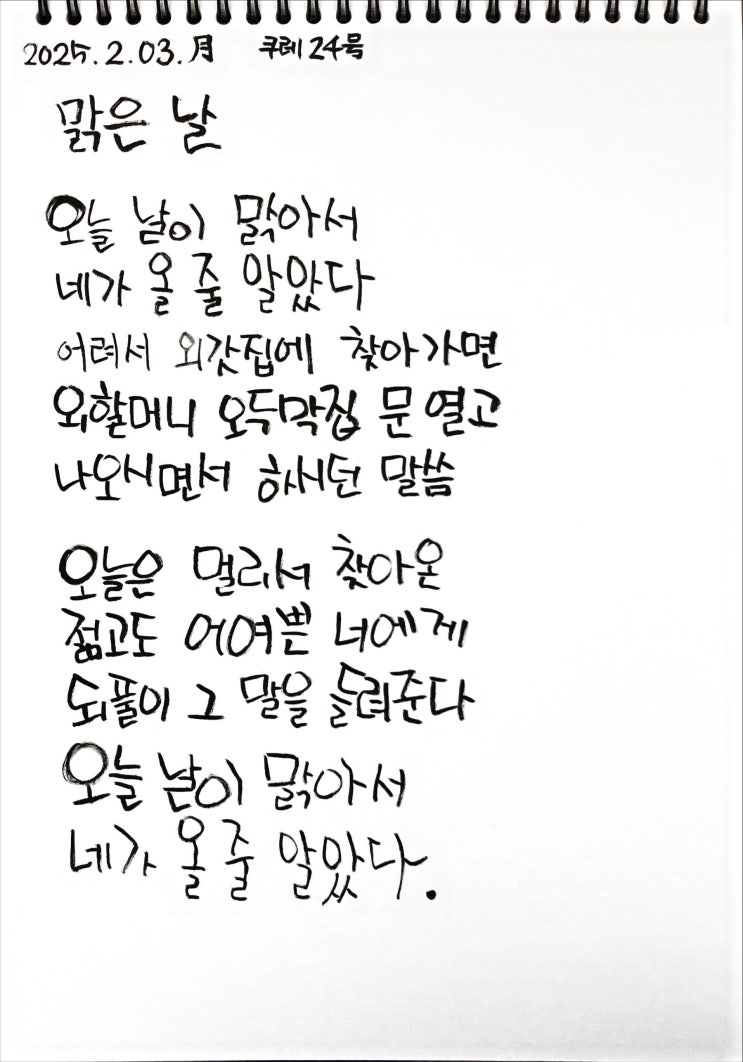 2025.2.03.月 쿠레 24号
맑은 날
오늘 날이 맑아서
네가 올 줄 알았다
어려서 외갓집에 찾아가면
외할머니 오두막집 문 열고
나오시면서 하시던 말씀
오늘은 멀리서 찾아온
젊고도 어여쁜 너에게
되풀이 그 말을 들려준다
오늘 날이 맑아서
네가 올 줄 알았다.